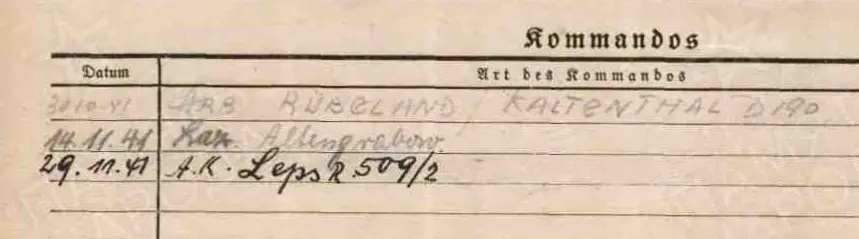 Kommandos
Datum Art des Kommandos
30.10.41 ARB RÜBELAND / KALTENTHAL D 190
14.11.41 Laz. Altengrabow.
29.11.41 A.K. Leps R 509/2